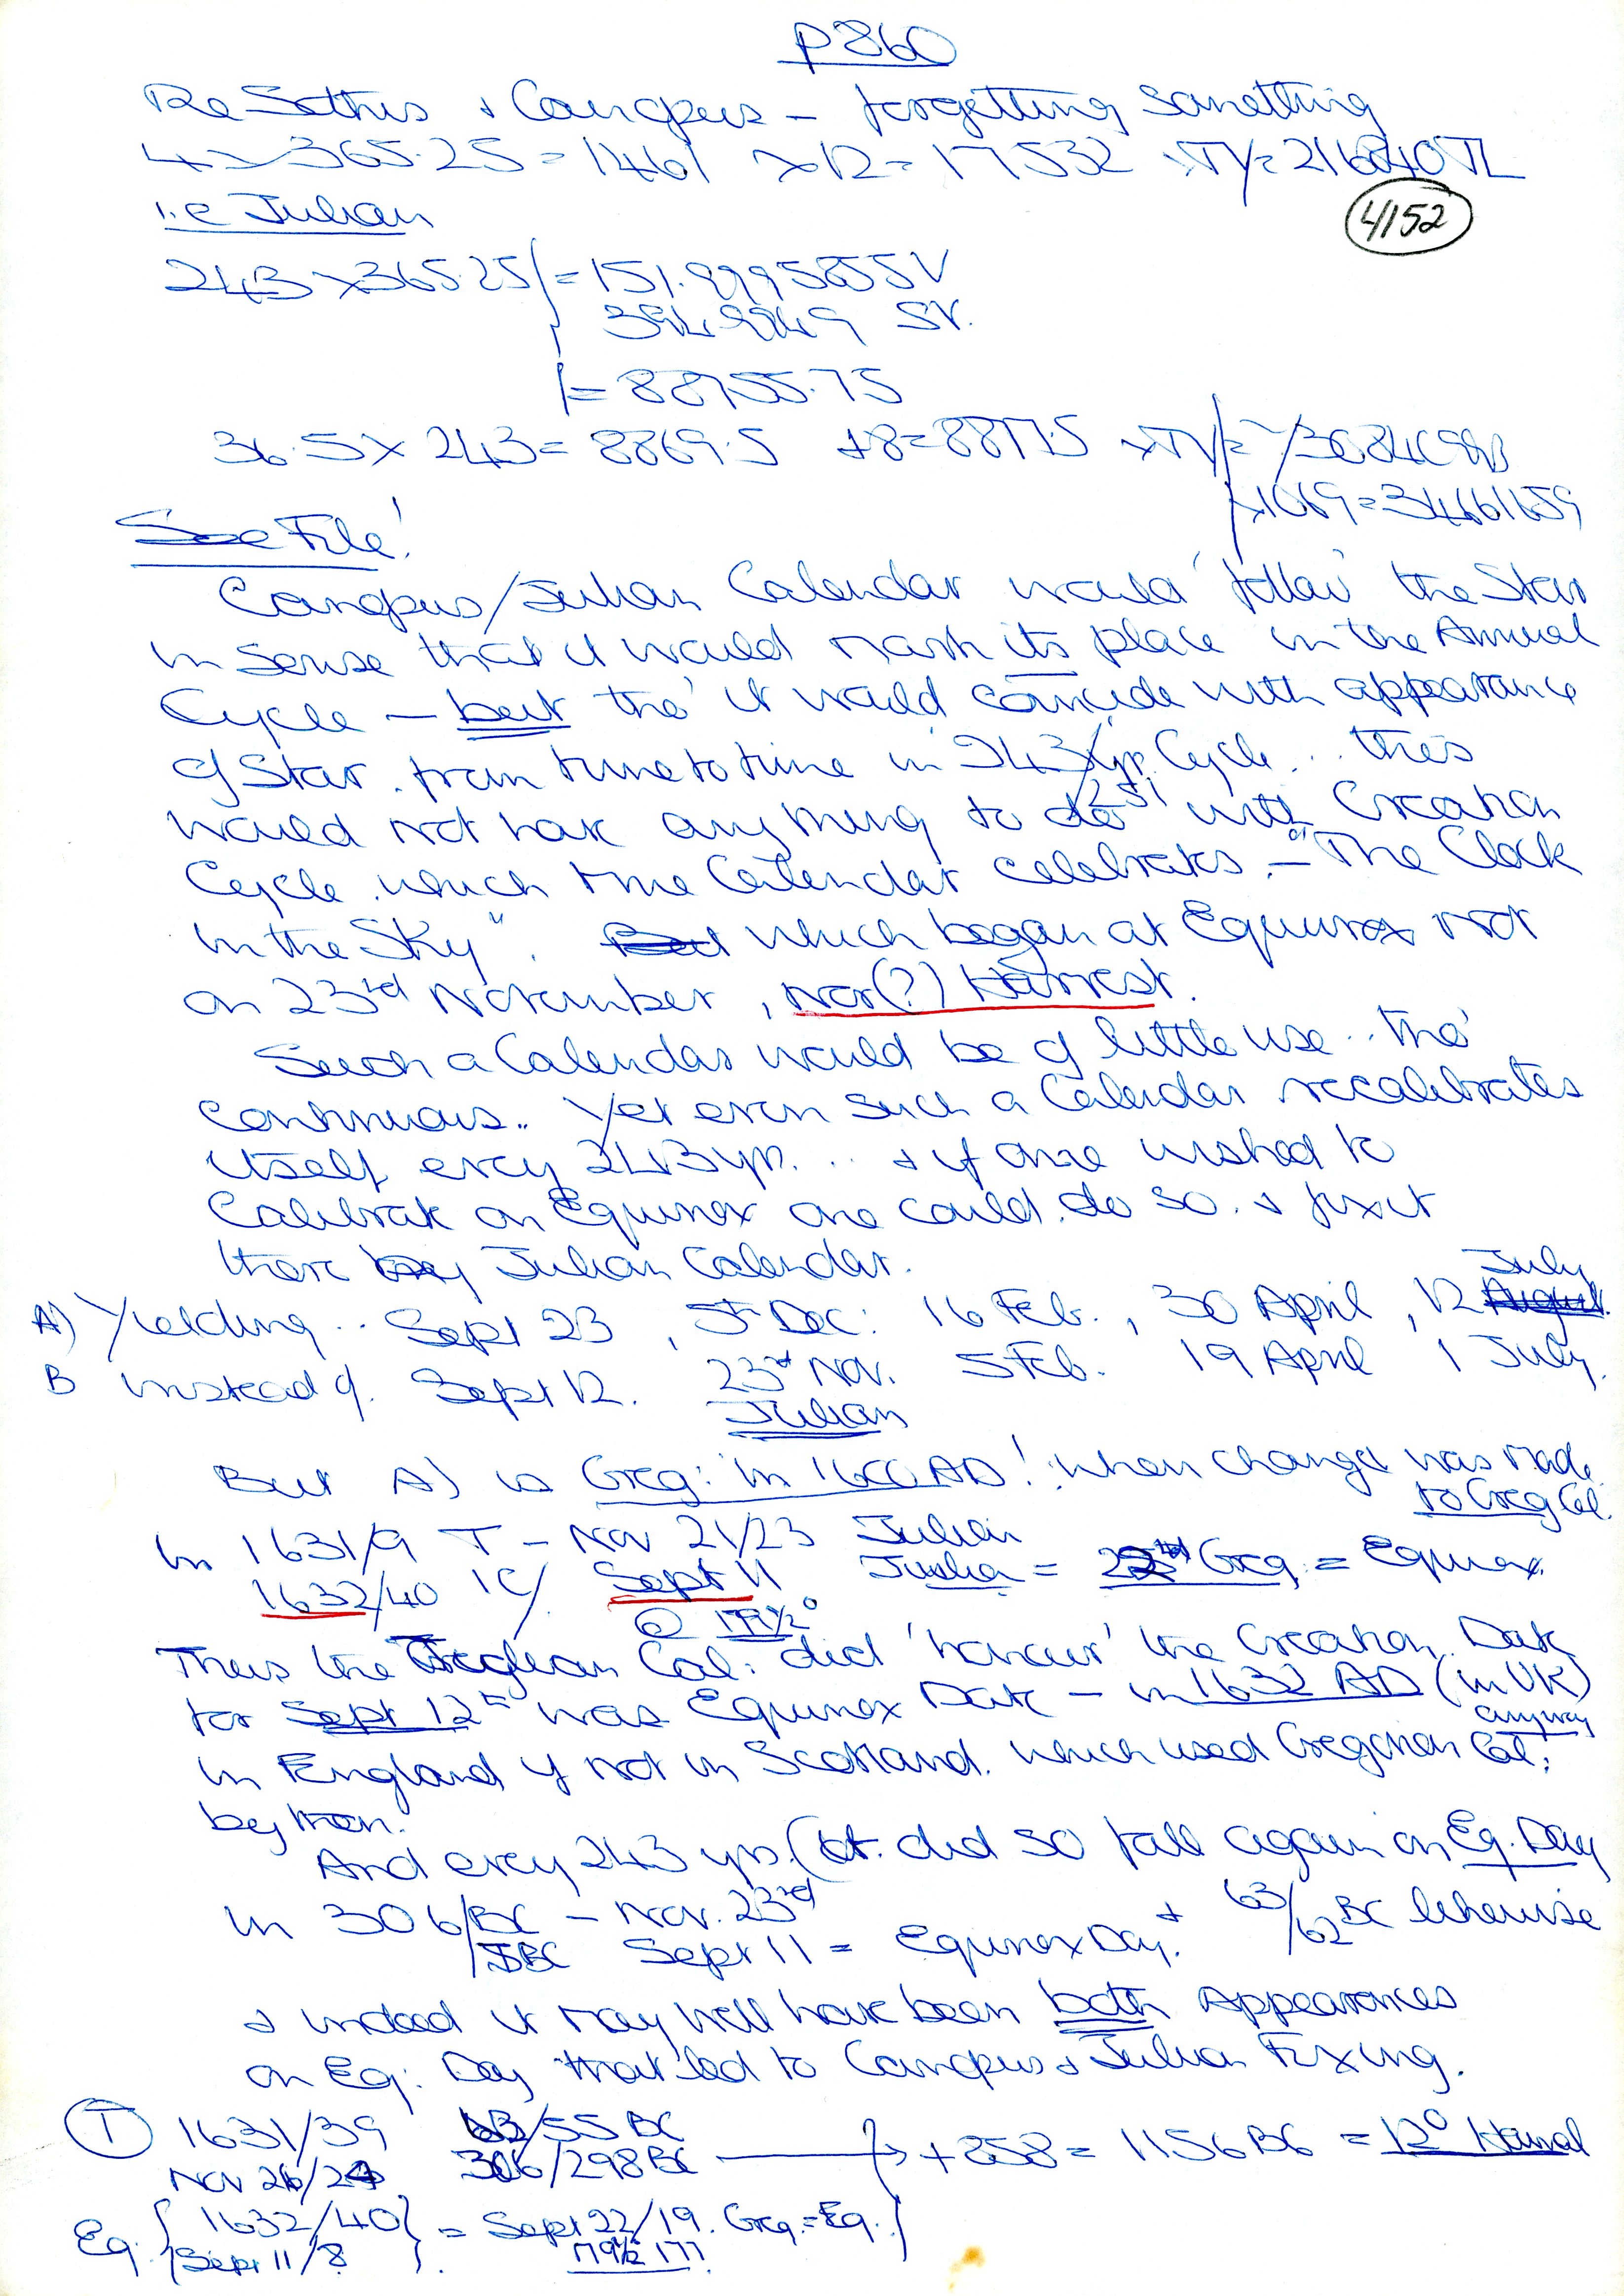 p860
Re Sothis + Canopus - forgetting something
4 x 365.25 = 1461 x12 = 17532 xTY=
i.e Julian
4/152
243 x 365.25 =
SV.
= 88755.75
36.5 x 243 = 8869.5 +8=8877.5
x1069=34661659
See File!
Canopus/Julian Calendar would 'follow' the Star
in sense that it would mark its place in the Annual
Cycle - but tho' it would coincide with appearance
of Star from time to time in 243/251 yr. Cycle... this
would not have anything to do with Creation
Cycle which the Calendar celebrates - "The Clock
in the Sky". But which began at Equinox not
on 23rd November, nor(?) Harvest.
Such a Calendar would be of little use.. tho'
continuous.. Yet even such a Calendar recalibrates
itself every 243 yr. ... + if one wished to
Calibrate on Equinox one could do so. + fix it
there by Julian Calendar.
A) Yielding.. Sept 23, 5th Dec: 16 Feb., 30 April, 12 August. July
B instead of. Sept 12. 23rd Nov. 5 Feb. 19 April 1 July.
Julian
But A) is Greg: in 1600 AD! when change was made
to Greg Cal.
In 1631/9 T - Nov 21/23 Julian
1632/40 IC/ Sept 11 = Greg. = Equinox.
@ 179½°
Thus the Cal: did 'honour' the Creation Date
for Sept 12th was Equinox Date - in 1632 AD (in UK)
anyway
in England if not in Scotland. which used Gregorian Cal:
by then.
And every 243 yrs. (it did so fall again on Eq. Day
in 306/BC - Nov. 23rd + 63/62 BC likewise
Sept 11 = Equinox Day.
+ indeed it may well have been both Appearances
on Eq: Day that led to Canopus + Julian Fixing.
T 1631/39 63/55 BC
306/298 BC + 858 = 1156 BC = 12°
Nov
Eq. { 1632/40 } = Sept 22/19. Greg. = Eq.
Sept 11/8 179½ 177